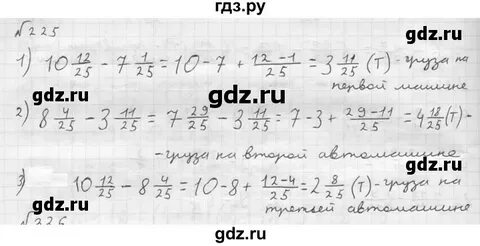 гдз.ру
№225
1) 10 12/25 - 7 1/25 = 10-7 + (12-1)/25 = 3 11/25 (т) - груза на
первой машине
gdz.ru
2) 8 4/25 - 3 11/25 = 7 29/25 - 3 11/25 = 7-3 + (29-11)/25 = 4 18/25 (т) -
- груза на второй автомашине
3) 10 12/25 - 8 4/25 = 10-8 + (12-4)/25 = 2 8/25 (т) - груза на
третьей автомашине
№226
gdz.ru
gdz.ru
gdz.ru
gdz.ru
gdz.ru